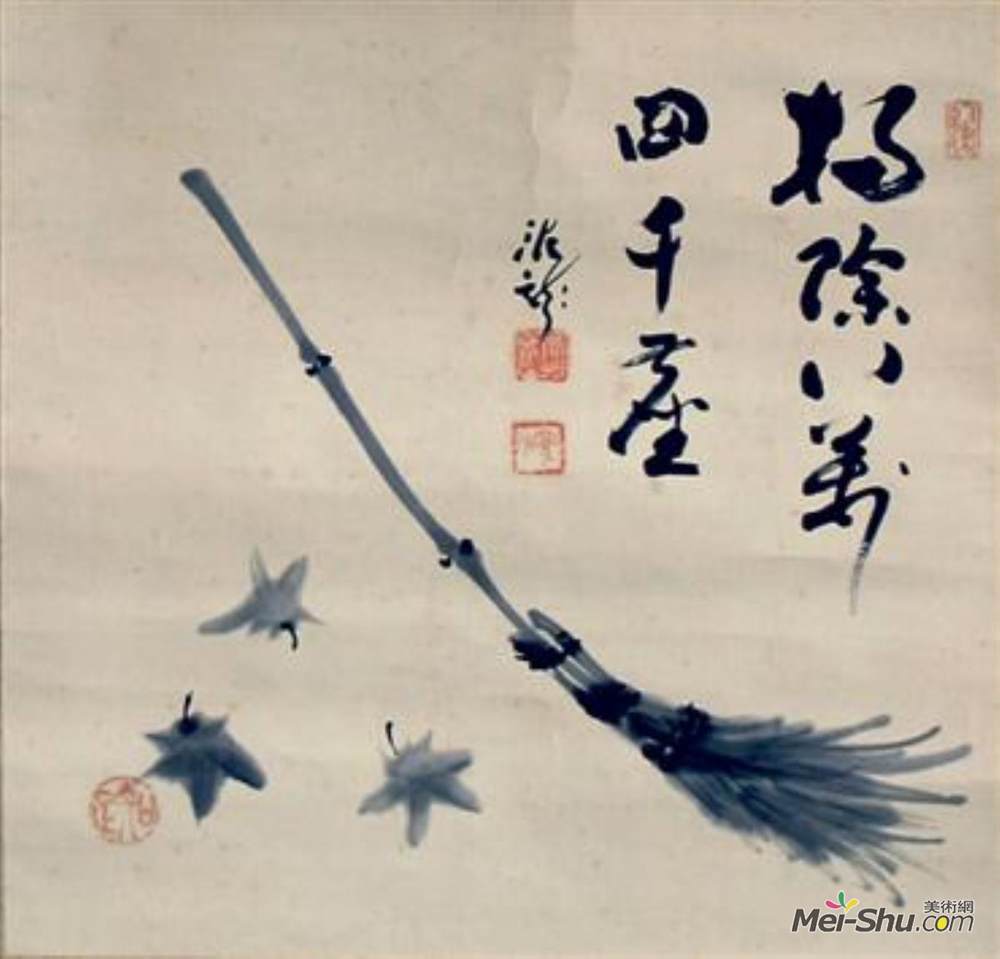 掃除八萬
四千塵
泥龍
美術網
Mei-Shu.com